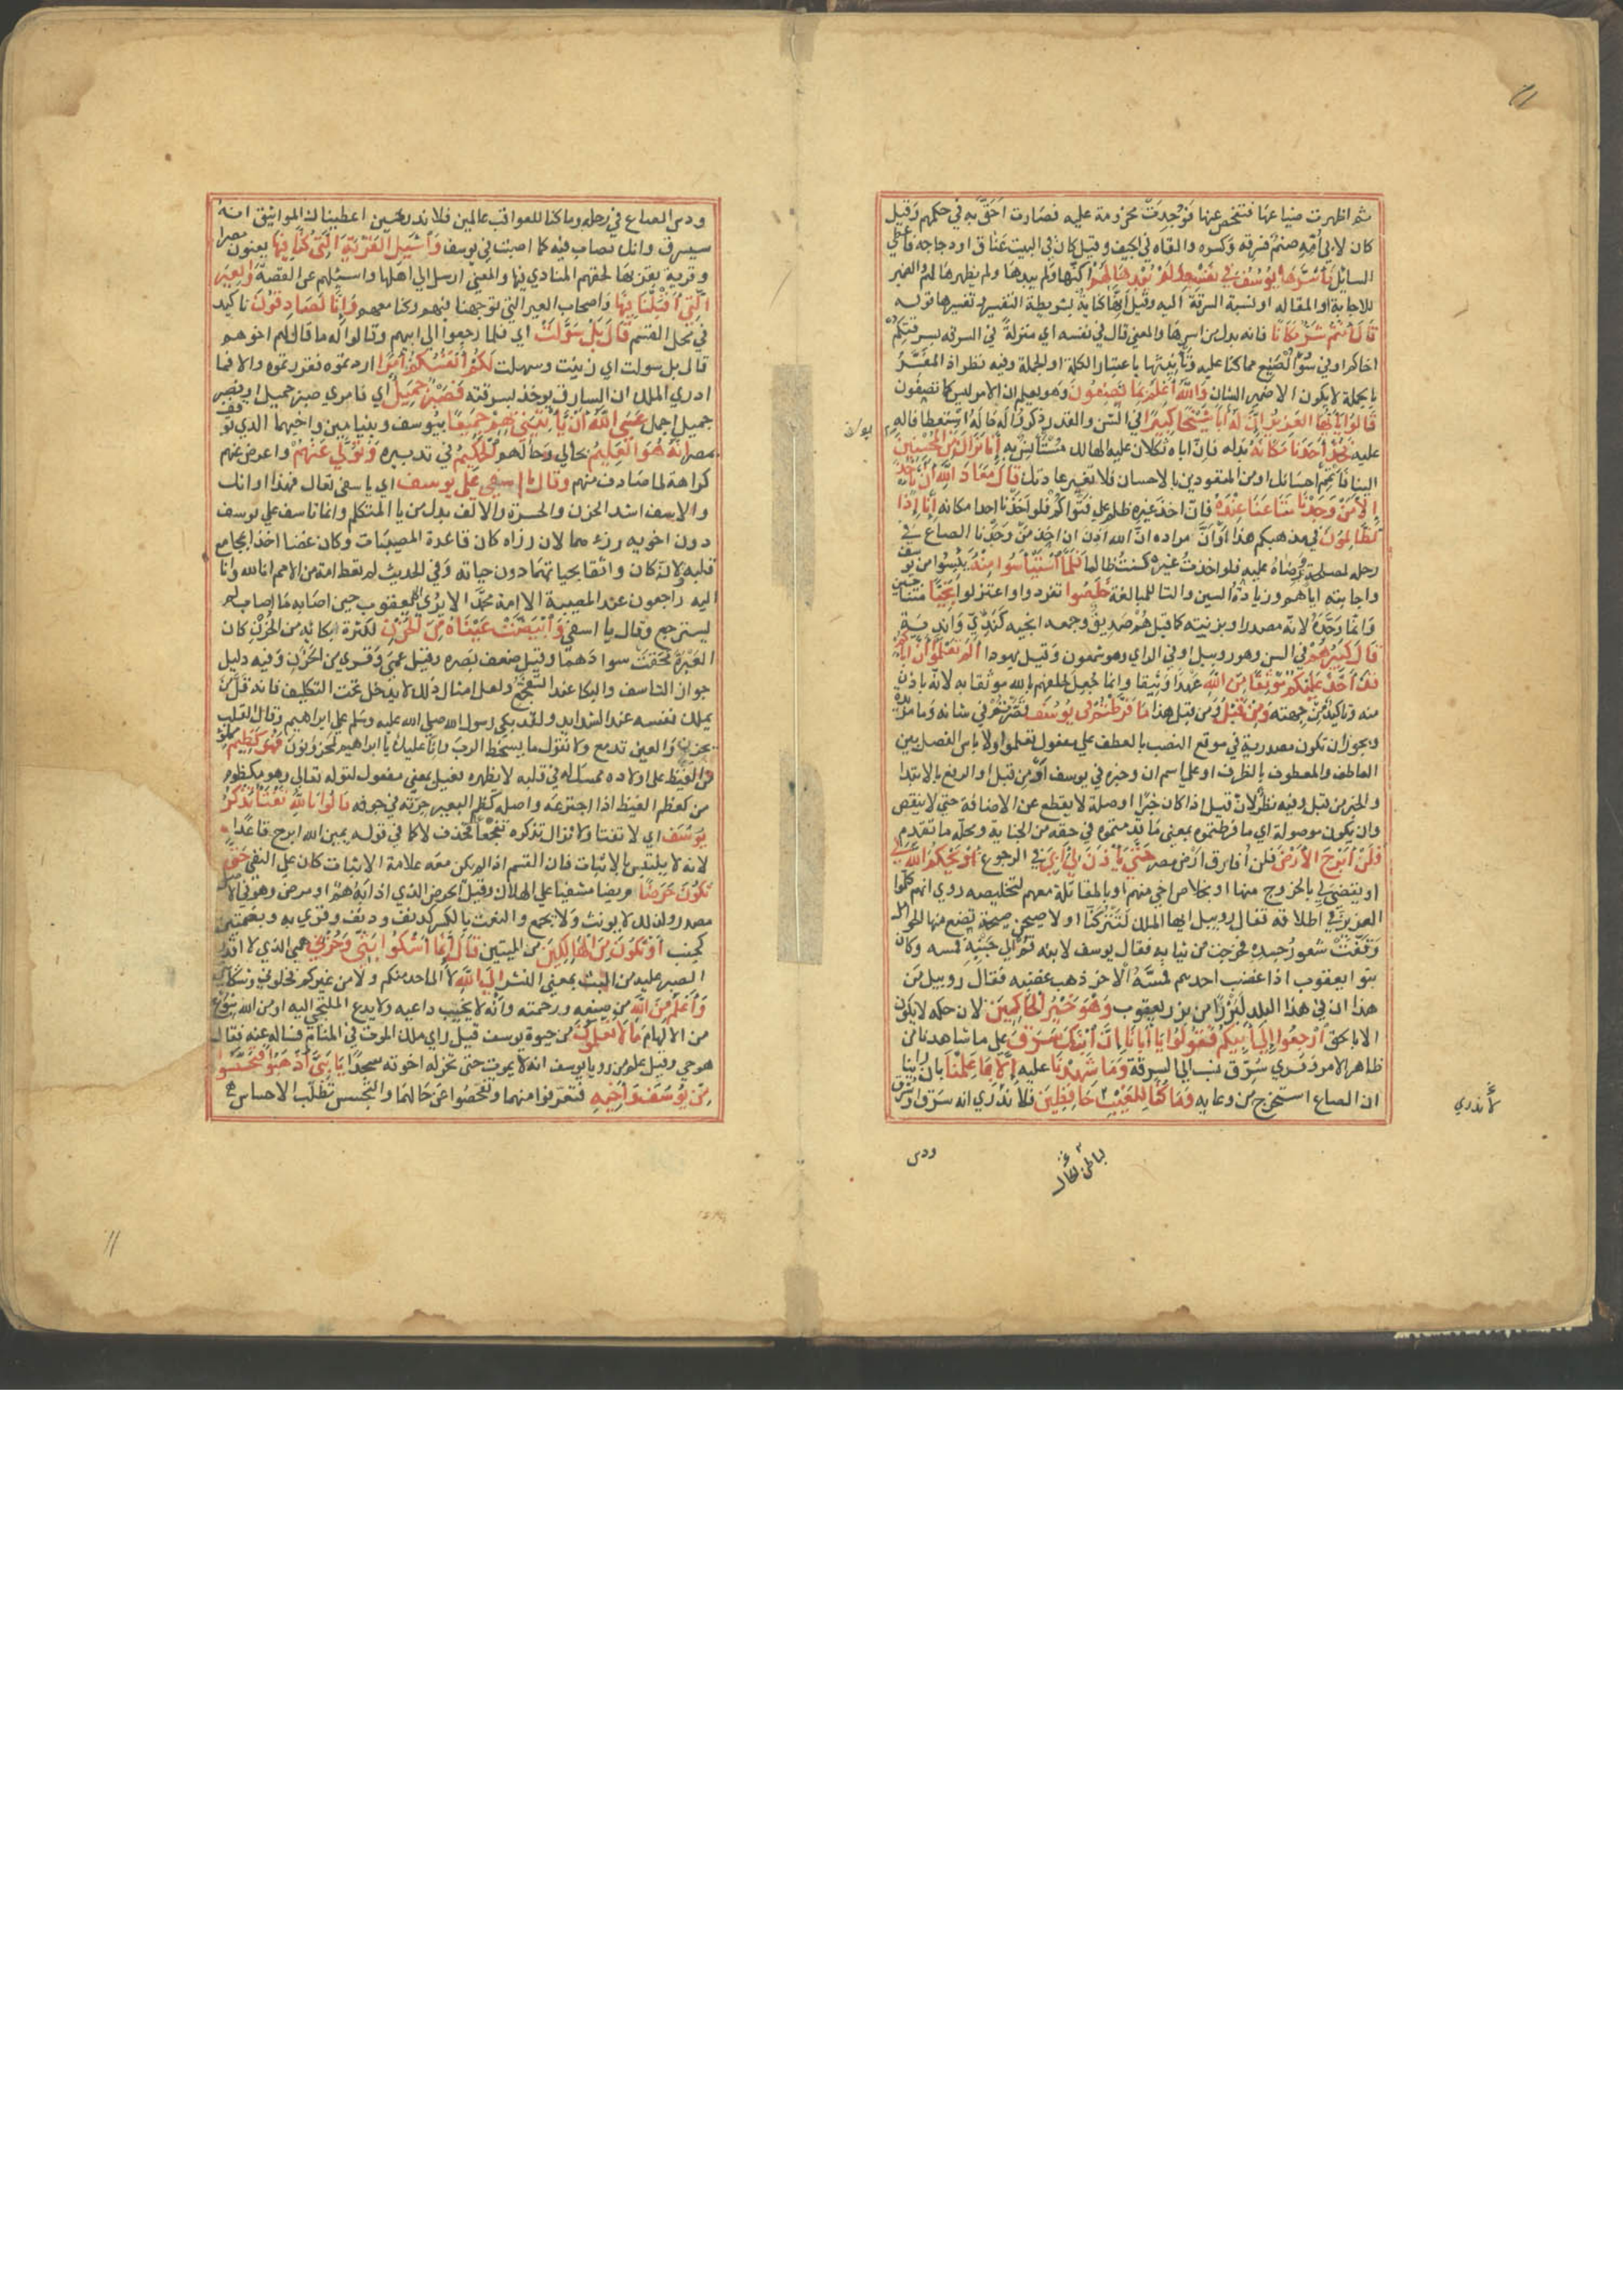 ثم اظهرت ضياعها فتفحص عنها فوجدت محزومة عليه فصارت احق به في حكمهم وقيل
كان لابي امه صنم فسرقه وكسره والقاه في الجيف وقيل كان في البيت عناق او دجاجة فاعطي
السايل فاسرها يوسف في نفسه ولم يبدها لهم اكنها ولم يبدها ولم يظهرها لهم والضمير
للاجابة او المقاله او نسبة السرقة اليه وقيل انها كناية بشريطة التفسير تفسيرها قوله
قال انتم شر مكانا فانه بدل من اسرها والمعني قال في نفسه اي منزلة في السرقه لسرقتكم
اخاكم او في سوء الصنيع مما كنا عليه وتانيثها باعتبار الكلمة او الجملة وفيه نظر اذ المفسر
بالجملة لا يكون الا ضمير الشان والله اعلم بما تصفون وهو يعلم ان الامر ليس كما تصفون
قالوا يا ايها العزيز ان له ابا شيخا كبيرا في السن والقدر ذكروا له حاله استعطافا له
عليه فخذ احدنا مكانه بدله فان اباه ثكلان عليه الهالك مستانس به انا نراك من المحسنين
الينا فاتمم احسانك او من المتعودين بالاحسان فلا تغير عادتك قال معاذ الله ان ناخذ
الا من وجدنا متاعنا عنده فان اخذ غيره ظلم علي فتواكم فلو اخذنا احدا مكانه انا اذا
لظالمون في مذهبكم هذا او ان مراده ان الله اذن ان اخذ من وجدنا الصاع في
رحله لمصلحة ورضاه عليه فلو اخذت غيره كنت ظالما فلما استيأسوا منه يئسوا من يوسف
واجابته اياهم وزيادة السين والتا للمبالغة خلصوا تفردوا واعتزلوا نجيا متناجين
وانما وحده لانه مصدر او بزنيته كما قيل هم صديق وجمعه انجيه كندي واندية
قال كبيرهم في السن وهو روبيل او في الراي وهو شمعون وقيل يهودا الم تعلموا ان اباكم
قد اخذ عليكم موثقا من الله عهدا وثيقا وانما جعل حلفهم بالله موثقا به لانه باذن
منه وتاكيد من جهته ومن قبل ومن قبل هذا ما فرطتم في يوسف قصرتم في شانه وما مزيدة
ويجوز ان تكون مصدرية في موقع النصب بالعطف علي مفعول تعلموا ولا باس الفصل بين
العاطف والمعطوف بالظرف او علي اسم ان وخبره في يوسف او من قبل او الرفع بالابتدا
والخبر من قبل وفيه نظر لان قبل اذا كان خبرا او صلة لا يقطع عن الاضافة حتي لا ينقص
وان يكون موصولة اي ما فرطتموه بمعني ما قدمتموه في حقه من الجناية ومحله ما تقدم
فلن ابرح الارض فلن افارق ارض مصر حتي ياذن لي ابي في الرجوع او يحكم الله لي
او يقضي لي بالخروج منها او بخلاص اخي منهم او بالمقاتلة معهم لتخليصه روي انهم كلموا
العزيز في اطلاقه فقال روبيل ايها الملك لتتركنا او لاصيحن صيحة تضع منها الحوامل
ووقفت شعور جسده فخرجت من ثيابه فقال يوسف لابنه قم الي جنبه فمسه وكان
بنو ايعقوب اذا غضب احدهم فمسه الاخر ذهب غضبه فقال روبيل من
هذا ان في هذا البلد لبزرا من بزر يعقوب وهو خير الحاكمين لان حكمه لا يكون
الا بالحق ارجعوا الي ابيكم فقولوا يا ابانا ان ابنك سرق علي ما شاهدنا من
ظاهر الامر وقري سرق نسب الي السرقة وما شهدنا عليه الا بما علمنا بان راينا
ان الصاع استخرج من وعايه وما كنا للغيب حافظين فلا ندري انه سرق او سرق
لا ندري
باطن الحال
ودس
ودس الصاع في رحله وما كنا للعواقب عالمين فلا ندر حين اعطيناك المواثيق انه
سيسرق وانك تصاب فيه كما اصبت في يوسف واسئل القرية التي كنا فيها يعنون مصر
او قرية بقربها لحقهم المنادي فيها والمعني ارسل الي اهلها واسئلهم عن القصة والعير
التي اقبلنا فيها واصحاب العير التي توجهنا فيهم وكنا معهم وانا لصادقون تاكيد
في محل القسم قال بل سولت اي فلما رجعوا الي ابيهم وقالوا له ما قال لهم اخوهم
قال بل سولت اي زينت وسهلت لكم انفسكم امرا اردتموه فقررتموه والا فما
ادري الملك ان السارق يوخذ بسرقته فصبر جميل اي فامري صبر جميل او فصبر
جميل اجمل عسي الله ان ياتيني بهم جميعا بيوسف وبنيامين واخيهما الذي توقف
بمصر انه هو العليم بحالي وحالهم الحكيم في تدبيره وتولي عنهم واعرض عنهم
كراهة لما صادف منهم وقال يا اسفي علي يوسف اي يا اسفي تعال فهذا اوانك
والاسف اشد الحزن والحسرة والالف بدل من يا المتكلم وانما تاسف علي يوسف
دون اخويه رزء هما لان رزاه كان قاعدة المصيبات وكان غضا اخذا بمجامع
قلبه ولانه كان واثقا بحياتهما دون حياته وفي الحديث لم تعط امة من الامم انا لله وانا
اليه راجعون عند المصيبة الا امة محمد الا يري الي يعقوب حين اصابه ما اصاب لم
يسترجع وقال يا اسفي وابيضت عيناه من الحزن لكثرة بكائه من الحزن كان
العبرة محقت سوادهما وقيل ضعف بصره وقيل عمي وقري من الحزن وفيه دليل
جواز التاسف والبكا عند التفجع ولعل امثال ذلك لا يدخل تحت التكليف فانه قل من
يملك نفسه عند الشدايد ولقد بكي رسول الله صلي الله عليه وسلم علي ابراهيم وقال القلب
يحزن والعين تدمع ولا نقول ما يسخط الرب وانا عليك يا ابراهيم لمحزونون فهو كظيم مملو
من الغيظ علي اولاده ممسك له في قلبه لا يظهره فعيل بمعني مفعول لقوله تعالي وهو مكظوم
من كعظم الغيظ اذا اجترعه واصله كظم البعير جرته في جوفه قالوا تالله تفتأ تذكر
يوسف اي لا تفتا ولا تزال تذكره تفجعا فحذف لا كما في قوله يمين الله ابرح قاعدا
لانه لا يلتبس بالاثبات فان القسم اذا لم يكن معه علامة الاثبات كان علي النفي حتي
تكون حرضا مريضا مشفيا علي الهلاك وقيل الحرض الذي اذابه هم او مرض وهو في الاصل
مصدر ولذلك لا يونث ولا يجمع والنعت بالكسر كدنف ودنف وقري به وبضمتين
كجنب او تكون من الهالكين من الميتين قال انما اشكوا بثي وحزني همي الذي لا اقدر
الصبر عليه من البث بمعني النشر الي الله لا الي احد منكم ولا من غيركم فخلوني وشكايتي
واعلم من الله من صنعه ورحمته وانه لا يخيب داعيه ولا يدع الملتجي اليه او من الله بنوع
من الالهام ما لا تعلمون من حيوة يوسف قيل راي ملك الموت في المنام فساله عنه فقال
هو حي وقيل علم من رويا يوسف انه لا يموت حتي تخر له اخوته سجدا يا بني اذهبوا فتحسسوا
من يوسف واخيه فتعرفوا منهما وتفحصوا عن حالهما والتجسس تطلب الاحساس